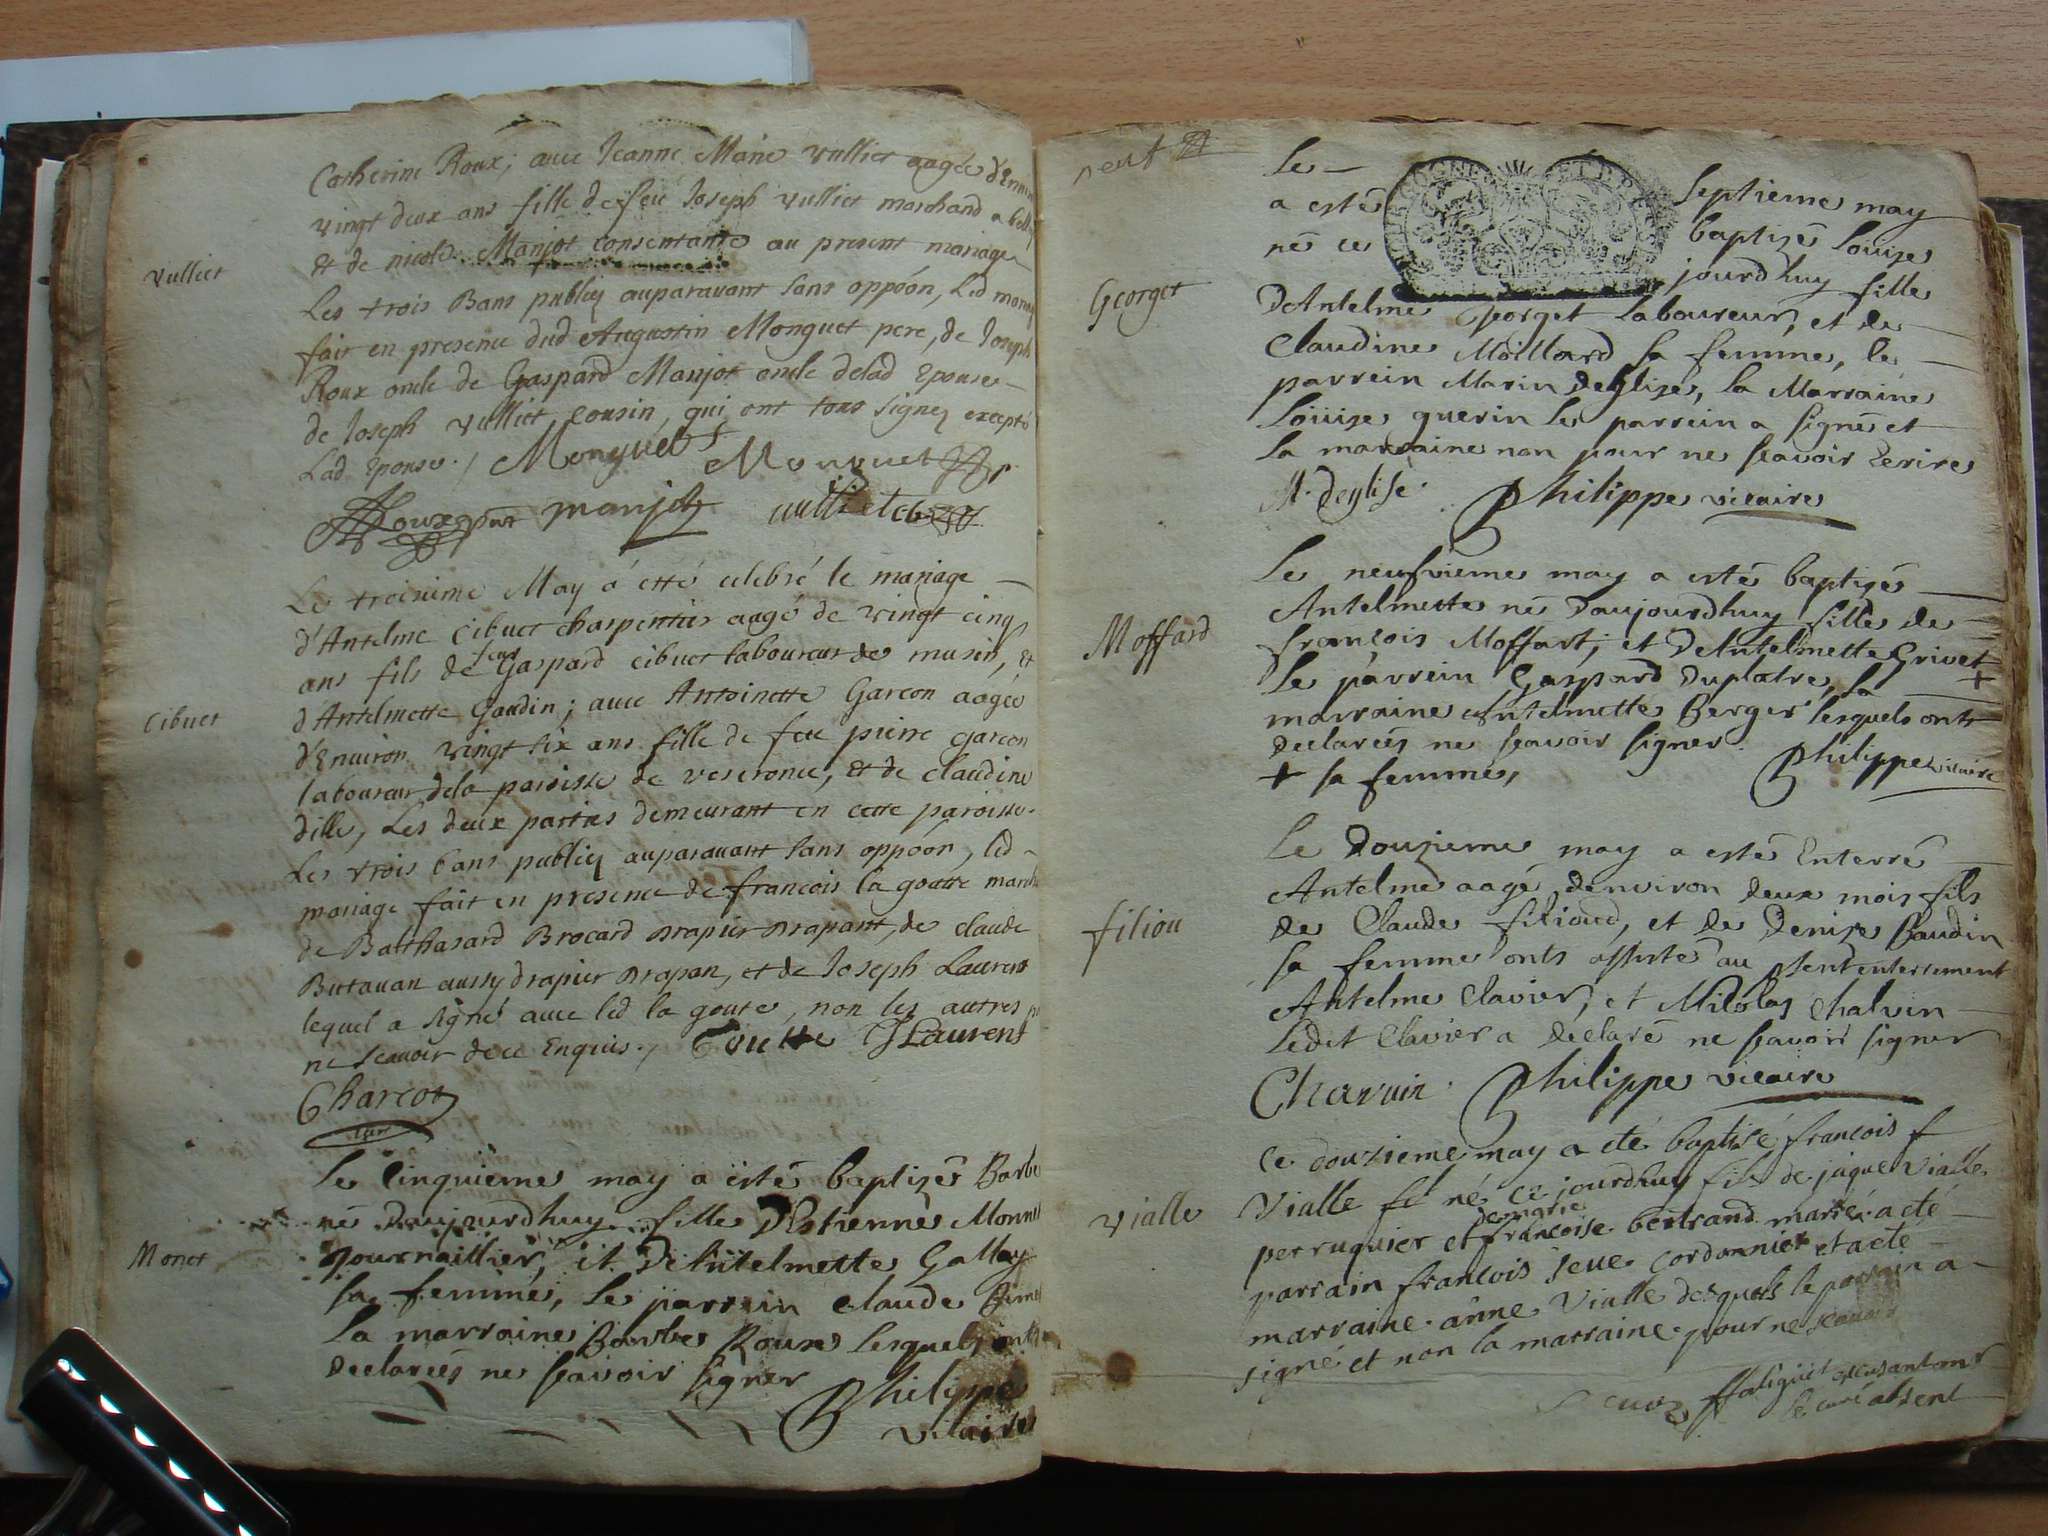 Catherine Roux; avec Jeanne Marie vulliet aagée
vingt deux ans fille de feu Joseph vulliet marchand a
& de nicole Manjot consentante au present mariage
vulliet
Les trois Bans publiez auparavant sans oppôon, Led
fait en presence dud Augustin Monguet pere, de Joseph
Roux oncle de Gaspard Manjot oncle delad Epouse
de Joseph vulliet cousin, qui ont tous signez excepté
Lad Epouse. / Monguet Monguet
Roux manjot vulliet
Le troisieme May à etté celebré le mariage
d'Antelme Cibuet charpentier aagé de vingt cinq
ans fils de feu Gaspard cibuet laboureur de musin, &
d'Antelmette Gaudin; avec Antoinette Garcon aagée
Cibuet
d'Environ vingt six ans fille de feu pierre garcon
laboureur dela paroisse de veseronce, & de claudine
dille, Les deux parties demeurant en cette paroisse.
Les trois bans publiez auparavant sans oppôon, led
mariage fait en presence de francois la goutte
de Balthasard Brocard drapier drapant, de claude
Butavan aussy drapier drapan, et de Joseph Laurent
lequel a signé avec led la goute, non les autres
ne scavoir de ce Enquis. / Goutte J Laurent
Charcot
Le Cinquieme may a esté baptizé Barbe
né Daujourdhuy fille D'Estienne Monnet
Monet
Journaillier, et DeAntelmette Gallay
sa femme, le parrein Claude
La marraine Barbe Roux Lesquels ont
declarés ne scavoir signer
Philippe
vicaire
neuf
Le septieme may
a esté baptizé Louise
né ce jourdhuy fille
Georget
DAntelme Georget Laboureur, et de
Claudine Moillard sa femme, le
parrein Marin Deglise, la Marraine
Louise guerin le parrein a signé et
la marraine non pour ne scavoir Ecrire
M. deglise. Philippe vicaire
Le neufvieme may a esté baptizé
Antelmette né Daujourdhuy fille de
Moffard
francois Moffart, et DeAntelmette Grivet +
Le parrein Gaspard Duplatre, la
marraine Antelmette Berger lesquels ont
declarés ne scavoir signer.
+ sa femme, Philippe vicaire
Le Douzieme may a esté Enterré
Antelme aagé denviron deux mois fils
filiou
de Claude filioud, et de Denise Baudin
sa femme onts assisté au psent enterrement
Antelme Clavier, et Nicolas Chalvin
Ledit Clavier a declaré ne scavoir signer
Charvin. Philippe vicaire
Ce douzieme may a cté baptisé francois f
vialle
Vialle fil né ce jourdhuy fils de jaque Vialle
perruquier et demarie francoise bertrand mariè. a cté
parrain francois seve cordonnier et a cté
marraine. anne Vialle desquels le parrain a
signé et non la marraine. pour ne scavoir
le curé absent